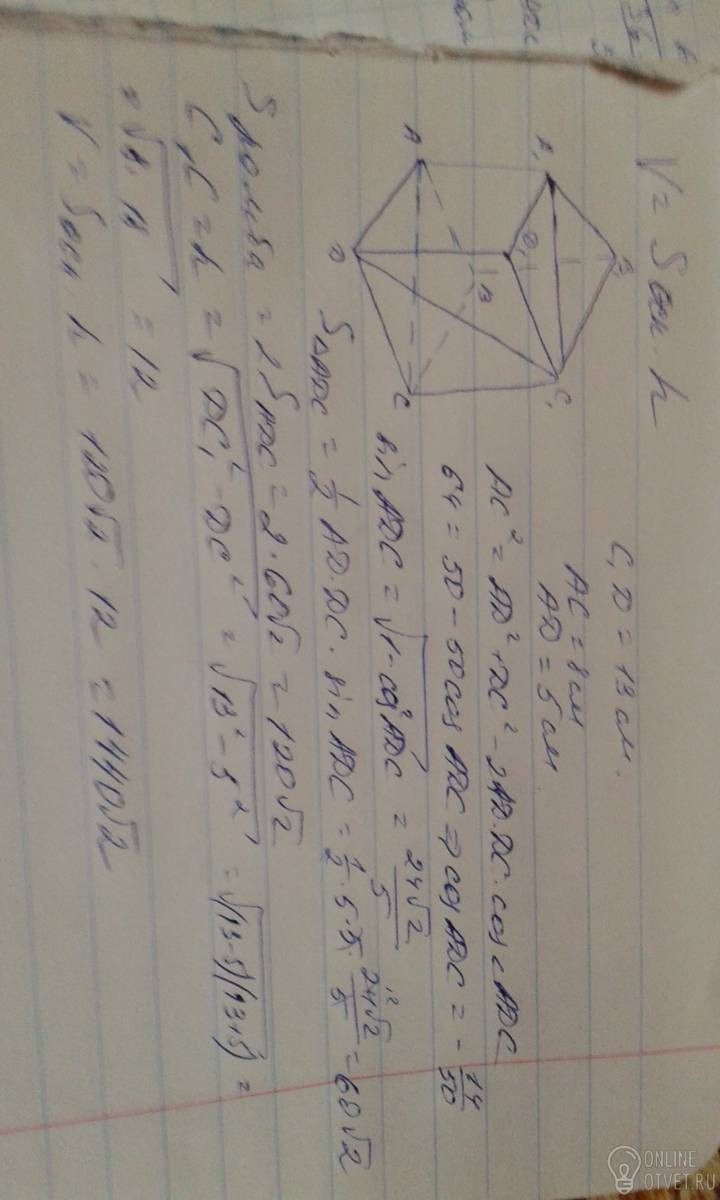 V = Sосн · h
C₁D = 13 см.
AC = 8 см
AD = 5 см
A₁
B₁
C₁
D₁
A
B
C
D
AC² = AD² + DC² - 2AD·DC·cos∠ADC
64 = 50 - 50cos ADC ⇒ cos ADC = - 14/50
sin ADC = √(1-cos²ADC) = 24√2/5
S△ADC = 1/2 AD·DC·sin ADC = 1/2 · 5 · 5 · 24√2/5 = 60√2
12
Sромба = 2S ADC = 2·60√2 = 120√2
C₁C = h = √(DC₁² - DC²) = √(13² - 5²) = √((13-5)(13+5)) =
= 12
V = Sосн · h = 120√2 · 12 = 1440√2
ONLINE
OTVET.RU